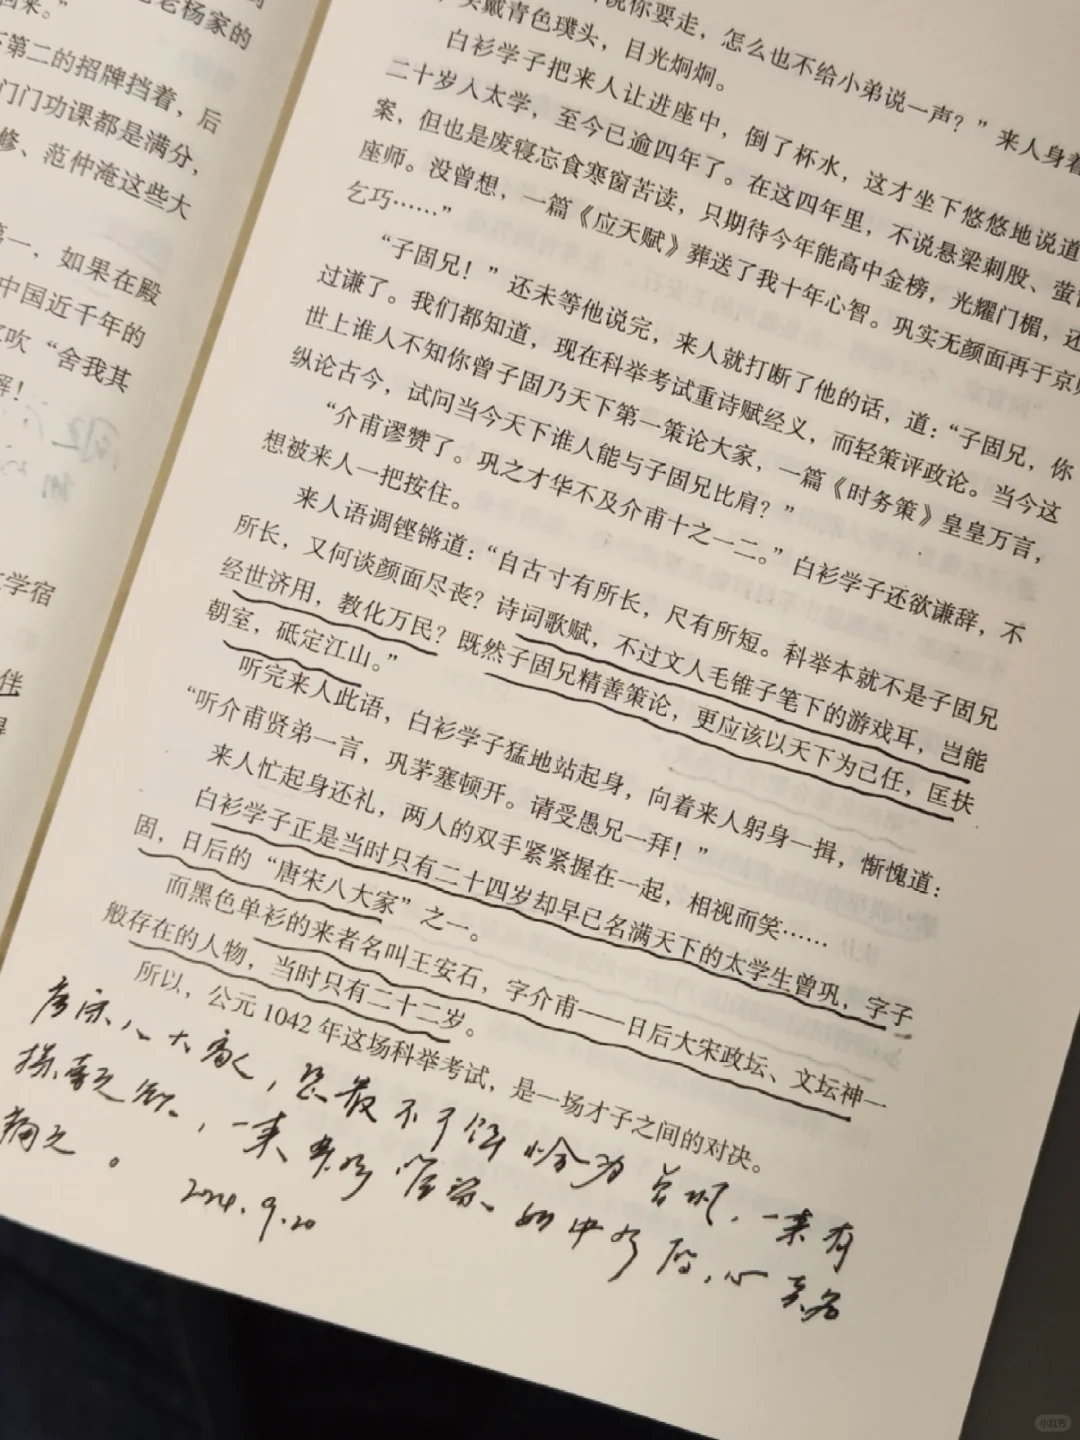 回来。”
老杨家的
第二的招牌挡着，后
门门功课都是满分，
修、范仲淹这些大
第一，如果在殿
中国近千年的
吹“舍我其
解！
文学宿
伴
得
说你要走，怎么也不给小弟说一声？”来人身着
头戴青色璞头，目光炯炯。
白衫学子把来人让进座中，倒了杯水，这才坐下悠悠地说道
二十岁入太学，至今已逾四年了。在这四年里，不说悬梁刺股、萤
案，但也是废寝忘食寒窗苦读，只期待今年能高中金榜，光耀门楣，还
座师。没曾想，一篇《应天赋》葬送了我十年心智。巩实无颜面再于京
乞巧……”
“子固兄！”还未等他说完，来人就打断了他的话，道：“子固兄，你
过谦了。我们都知道，现在科举考试重诗赋经义，而轻策评政论。当今这
世上谁人不知你曾子固乃天下第一策论大家，一篇《时务策》皇皇万言，
纵论古今，试问当今天下谁人能与子固兄比肩？”
“介甫谬赞了。巩之才华不及介甫十之一二。”白衫学子还欲谦辞，不
想被来人一把按住。
来人语调铿锵道：“自古寸有所长，尺有所短。科举本就不是子固兄
所长，又何谈颜面尽丧？诗词歌赋，不过文人毛锥子笔下的游戏耳，岂能
经世济用，教化万民？既然子固兄精善策论，更应该以天下为己任，匡扶
朝室，砥定江山。”
听完来人此语，白衫学子猛地站起身，向着来人躬身一揖，惭愧道：
“听介甫贤弟一言，巩茅塞顿开。请受愚兄一拜！”
来人忙起身还礼，两人的双手紧紧握在一起，相视而笑……
白衫学子正是当时只有二十四岁却早已名满天下的太学生曾巩，字子
固，日后的“唐宋八大家”之一。
而黑色单衫的来者名叫王安石，字介甫——日后大宋政坛、文坛神一
般存在的人物，当时只有二十二岁。
所以，公元 1042 年这场科举考试，是一场才子之间的对决。
唐宋八大家，
2024.9.20
小红书